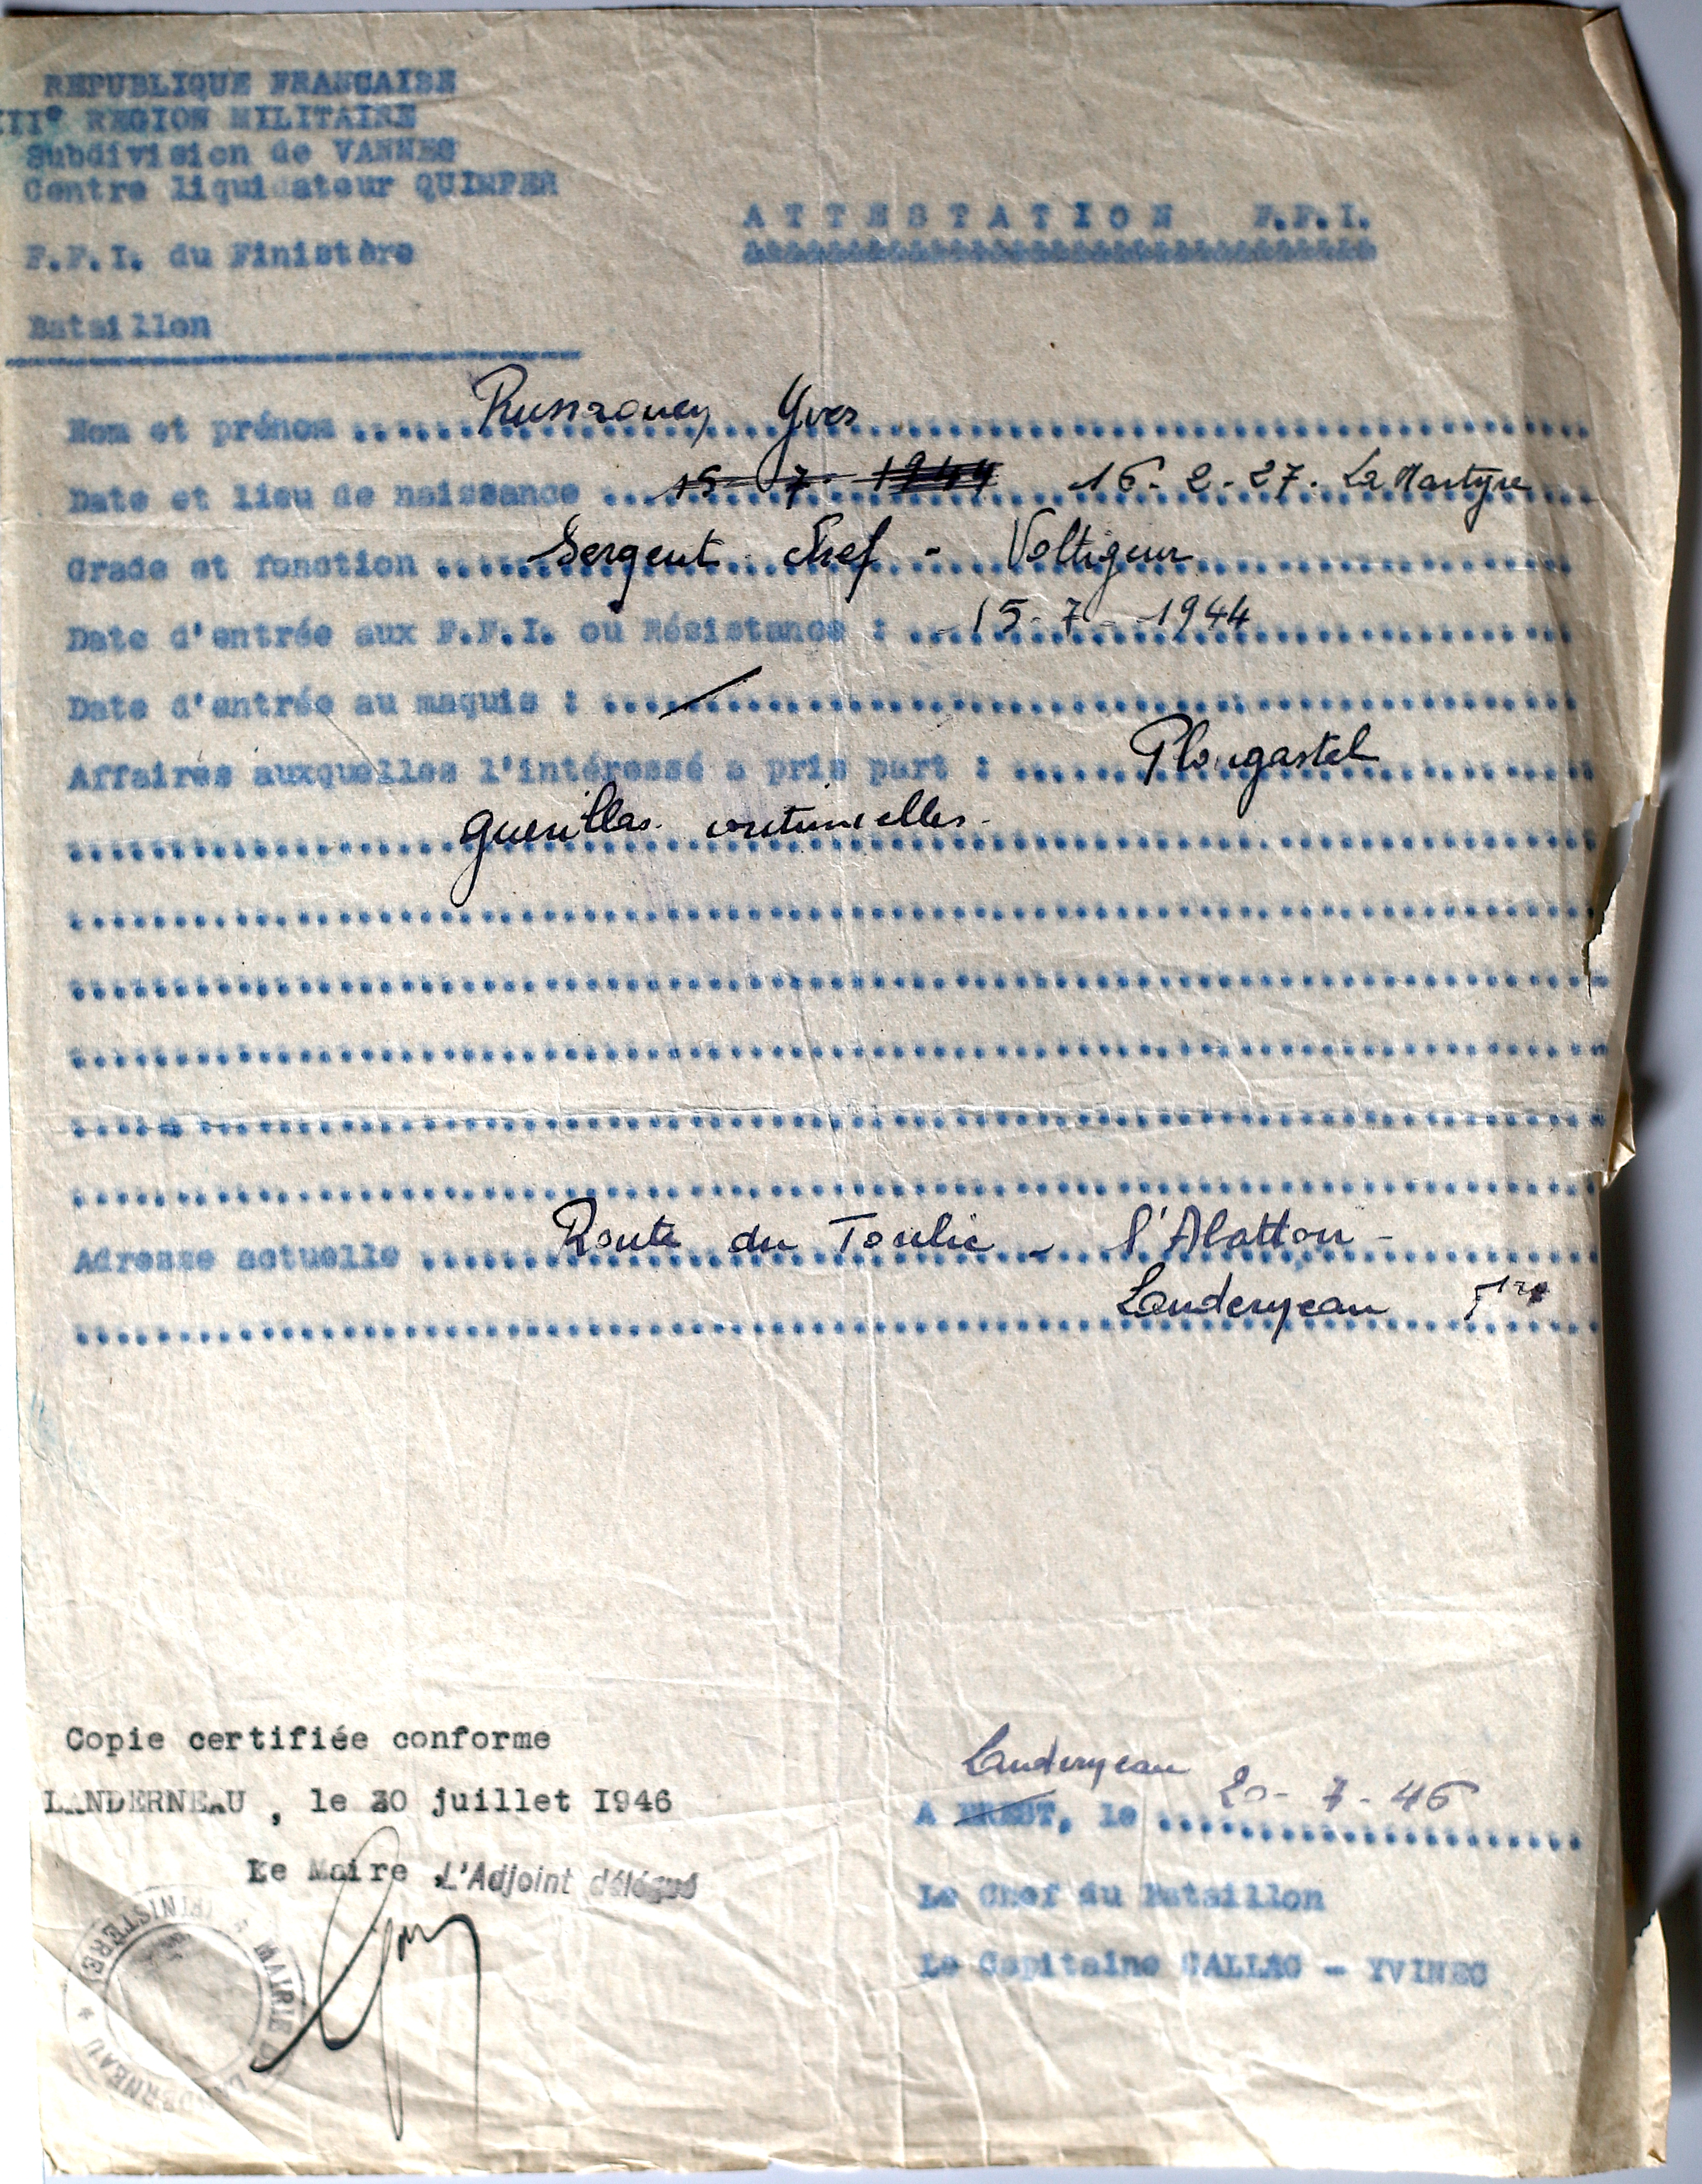 REPUBLIQUE FRANCAISE
III° REGION MILITAIRE
Subdivision de VANNES
Centre liquidateur QUIMPER
ATTESTATION F.F.I.
F.F.I. du Finistère
Bataillon
Nom et prénom Yves
Date et lieu de naissance 15 7 1944 16-2-27. La Martyre
Grade et fonction Sergent Chef - Voltigeur
Date d'entrée aux F.F.I. ou Résistance : 15-7-1944
Date d'entrée au maquis :
Affaires auxquelles l'intéressé a pris part : Plougastel
guerillas
Adresse actuelle Route du Toulic -
Landerneau
Copie certifiée conforme
Landerneau
LANDERNEAU, le 30 juillet I946
A BREST, le 20-7-46
Le Maire, L'Adjoint délégué
Le Chef du Bataillon
Le Capitaine CALLAC - YVINEC
MAIRIE DE LANDERNEAU * FINISTERE *